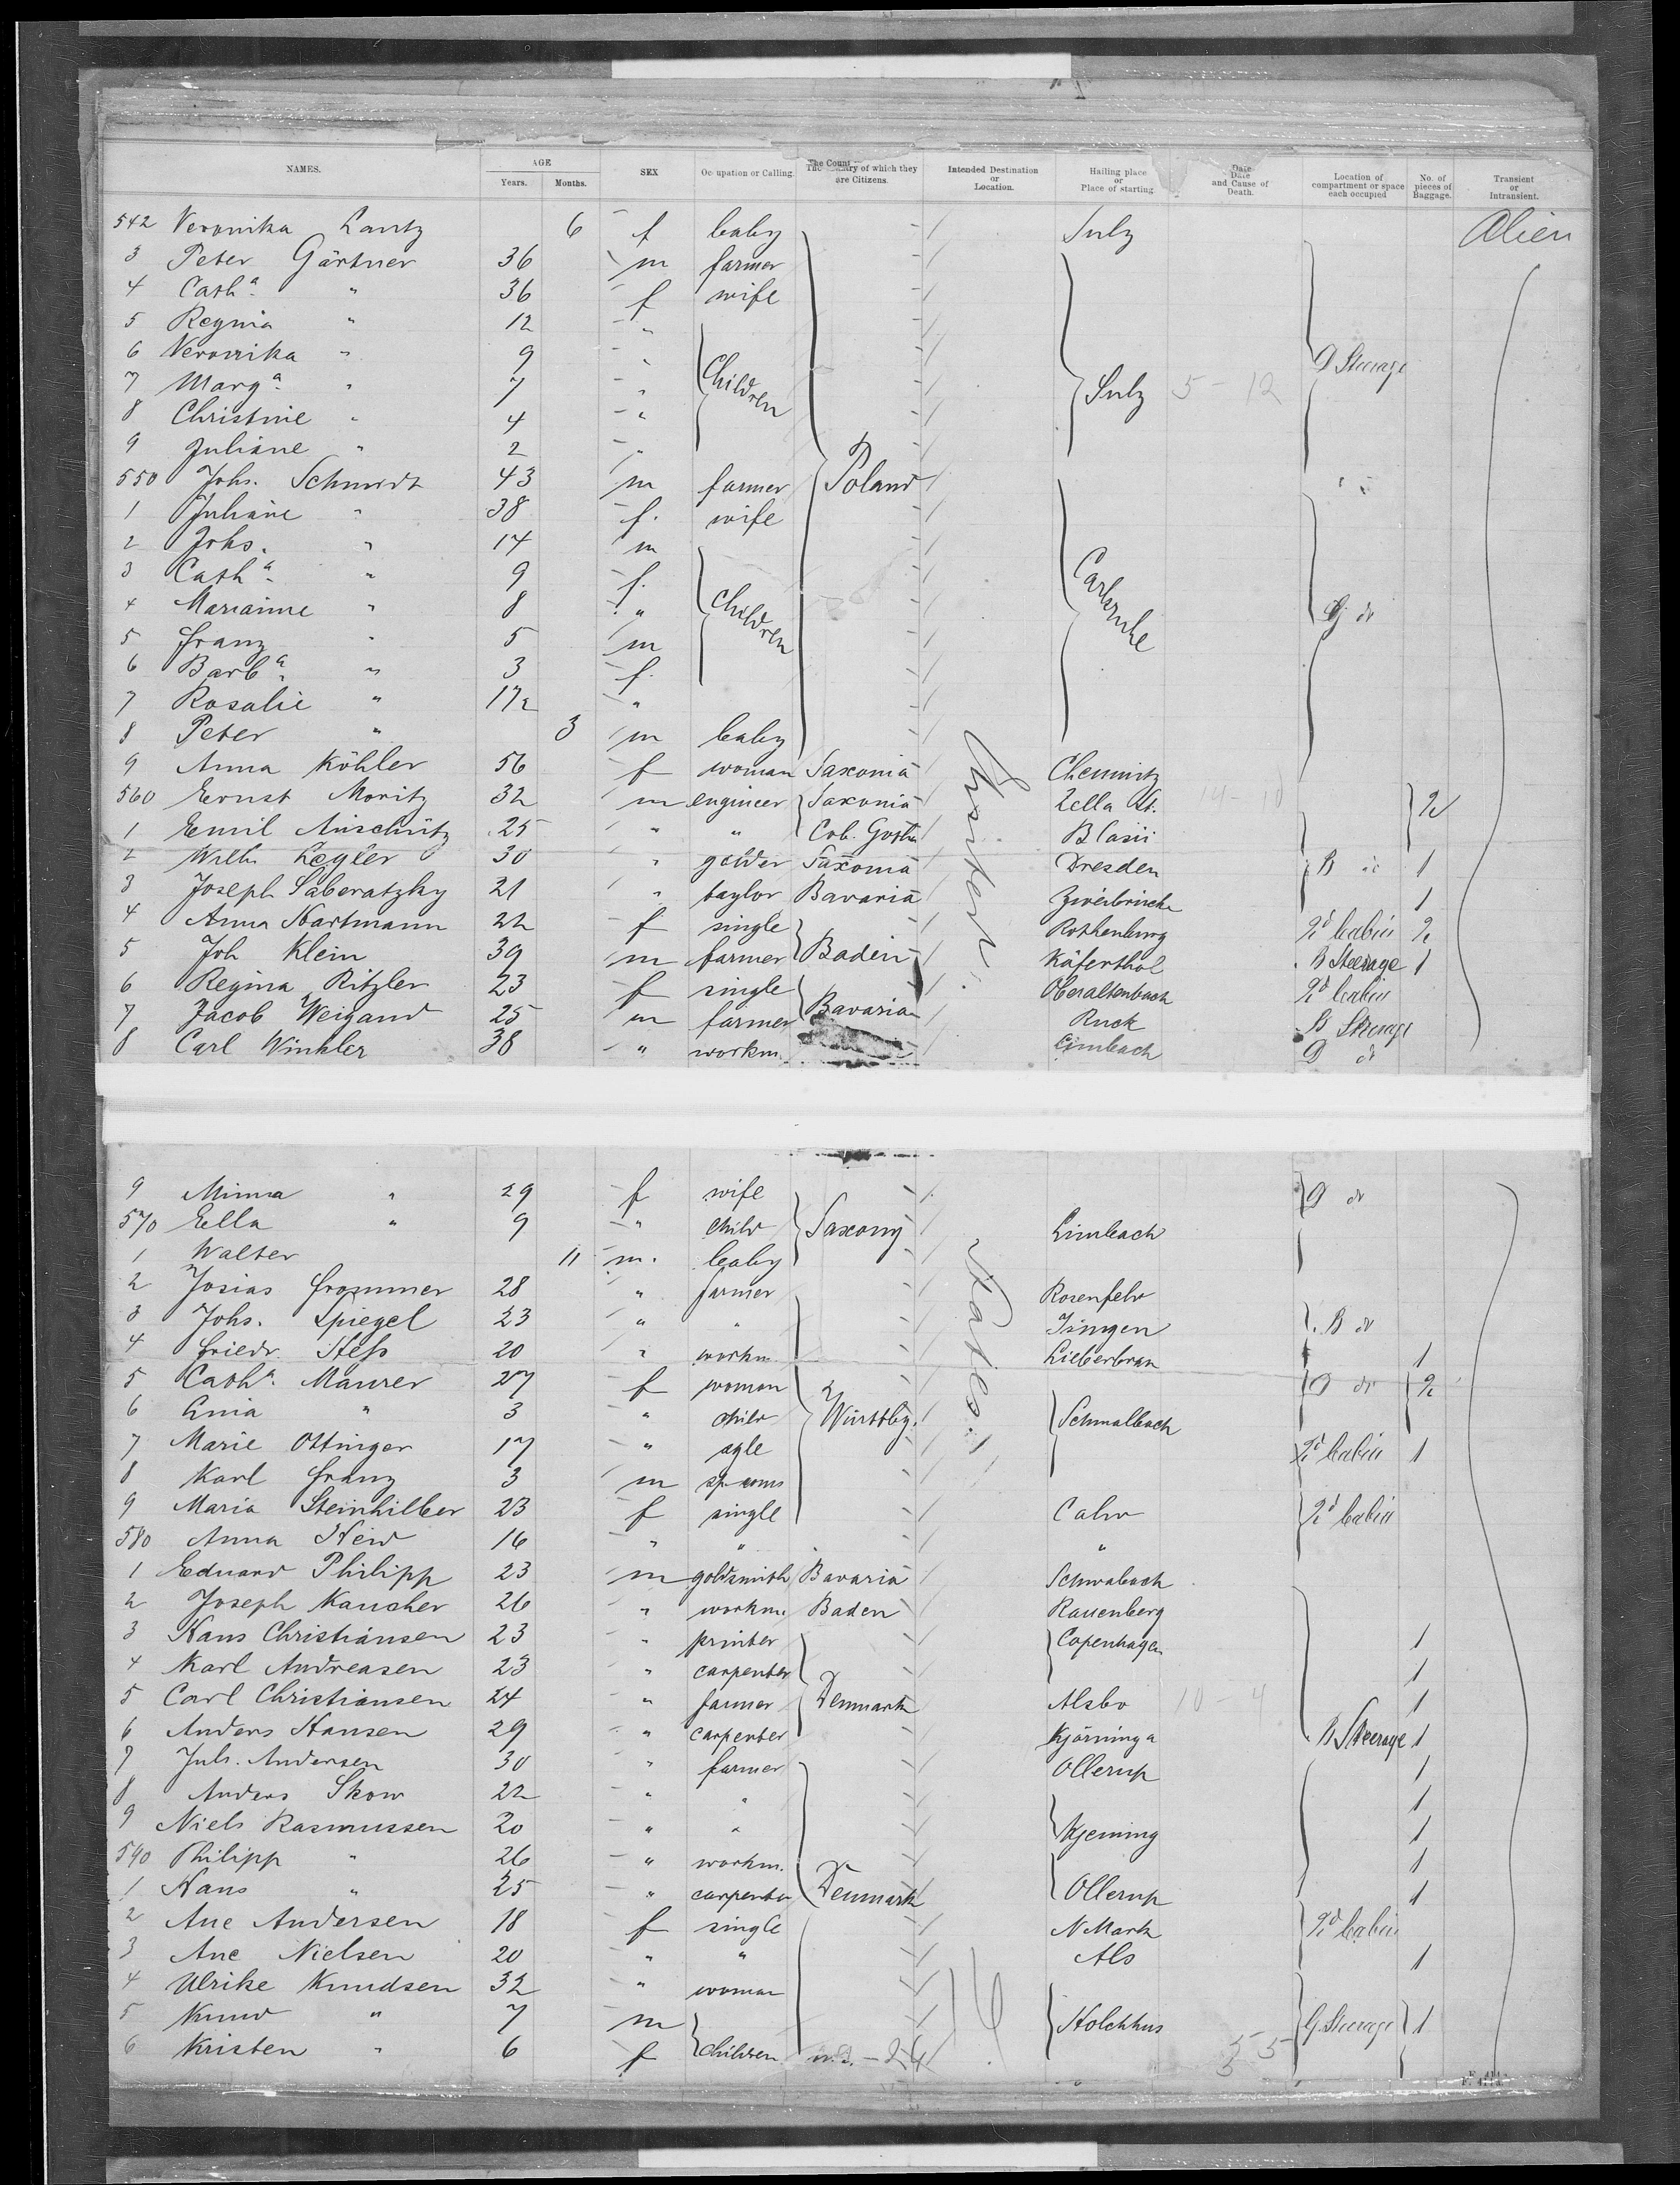 NAMES. AGE Years. Months. SEX Occupation or Calling. The Country of which they are Citizens. Intended Destination or Location. Hailing place or Place of starting Date and Cause of Death. Location of compartment or space each occupied No. of pieces of Baggage. Transient or Intransient.
542 Veronika Lantz 6 f baby Sulz Alien
3 Peter Gärtner 36 m farmer
4 Cath.a " 36 f wife
5 Regina " 12 "
6 Veronika " 9 " D Steerage
7 Marg.a " 7 " Children Sulz 5 - 12
8 Christine " 4 "
9 Juliane " 2 "
550 Johs. Schmidt 43 m farmer Poland
1 Juliane " 38 f. wife
2 Johs. " 14 m
3 Cath.a " 9 f.
4 Marianne " 8 " children Carlsruhe G do
5 Franz " 5 m
6 Barb.a " 3 f.
7 Rosalie " 1 1/2 "
8 Peter " 3 m baby
9 Anna Köhler 56 f woman Saxonia Chemnitz
560 Ernst Moritz 32 m engineer Saxonia United Zella St. 14 - 10 2
1 Emil Anschütz 25 " " Cob. Gotha Blasii
2 Wilh. Legler 30 " golder Saxonia Dresden B do 1
3 Joseph Saberatzky 21 " taylor Bavaria Zweibrücke 1
4 Anna Hartmann 22 f single Rothenburg 2d Cabin 2
5 Joh Klein 39 m farmer Baden Käferthal B Steerage 1
6 Regina Ritzler 23 f single Oberaltenbach 2d Cabin
7 Jacob Weigand 25 m farmer Bavaria Ruck B Steerage
8 Carl Winkler 38 " workm. Limbach D do
9 Minna " 29 f wife D do
570 Ella " 9 " child Saxony Limbach
1 Walter 11 m. baby
2 Josias Frommer 28 " farmer States. Rosenfeld
3 Johs. Spiegel 23 " " Isingen B do
4 Friedr. Hess 20 " workm. Lieberbran 1
5 Cath.a Maurer 27 f woman D do 2
6 " 3 " child Württbg. Schmalbach
7 Marie Ottinger 17 " sgle 2d Cabin 1
8 Karl Franz 3 m
9 Maria Steinhilber 23 f single Calw 2d Cabin
580 Anna Heid 16 " " "
1 Eduard Philipp 23 m goldsmith Bavaria Schwabach
2 Joseph Kaucher 26 " workm. Baden Rauenberg
3 Hans Christiansen 23 " printer Copenhagen 1
4 Karl Andreasen 23 " carpenter 1
5 Carl Christiansen 24 " farmer Denmark Alsbo 10 - 4 1
6 Anders Hansen 29 " carpenter Kjörninga B Steerage 1
7 Juls. Andersen 30 " farmer Ollerup 1
8 Anders Skow 22 " " 1
9 Niels Rasmussen 20 " " Kjerning 1
590 Philipp " 26 " workm. 1
1 Hans " 25 " carpenter Denmark Ollerup 1
2 Ane Andersen 18 f single N Mark 2d Cabin
3 Ane Nielsen 20 " " Als 1
4 Ulrike Knudsen 32 " woman
5 Knud " 7 m Holchhus G Steerage 1
6 Kristen " 6 f children 5 5